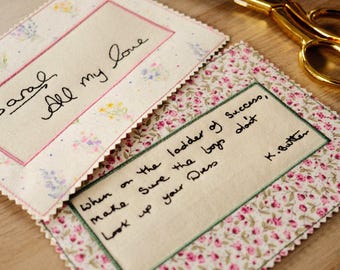 Sarah
All my love
When on the ladder of Success,
make sure the boys don't
look up your Dress
K. Butten